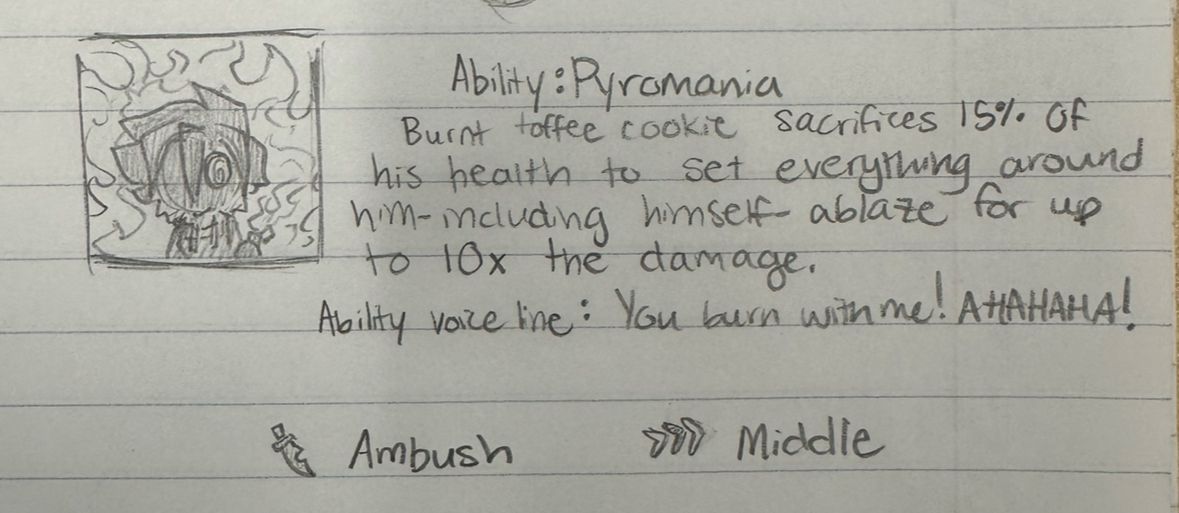 Ability: Pyromania
Burnt toffee cookie sacrifices 15% of
his health to set everything around
him-including himself- ablaze for up
to 10x the damage.
Ability voice line: You burn with me! AHAHAHA!
Ambush
Middle